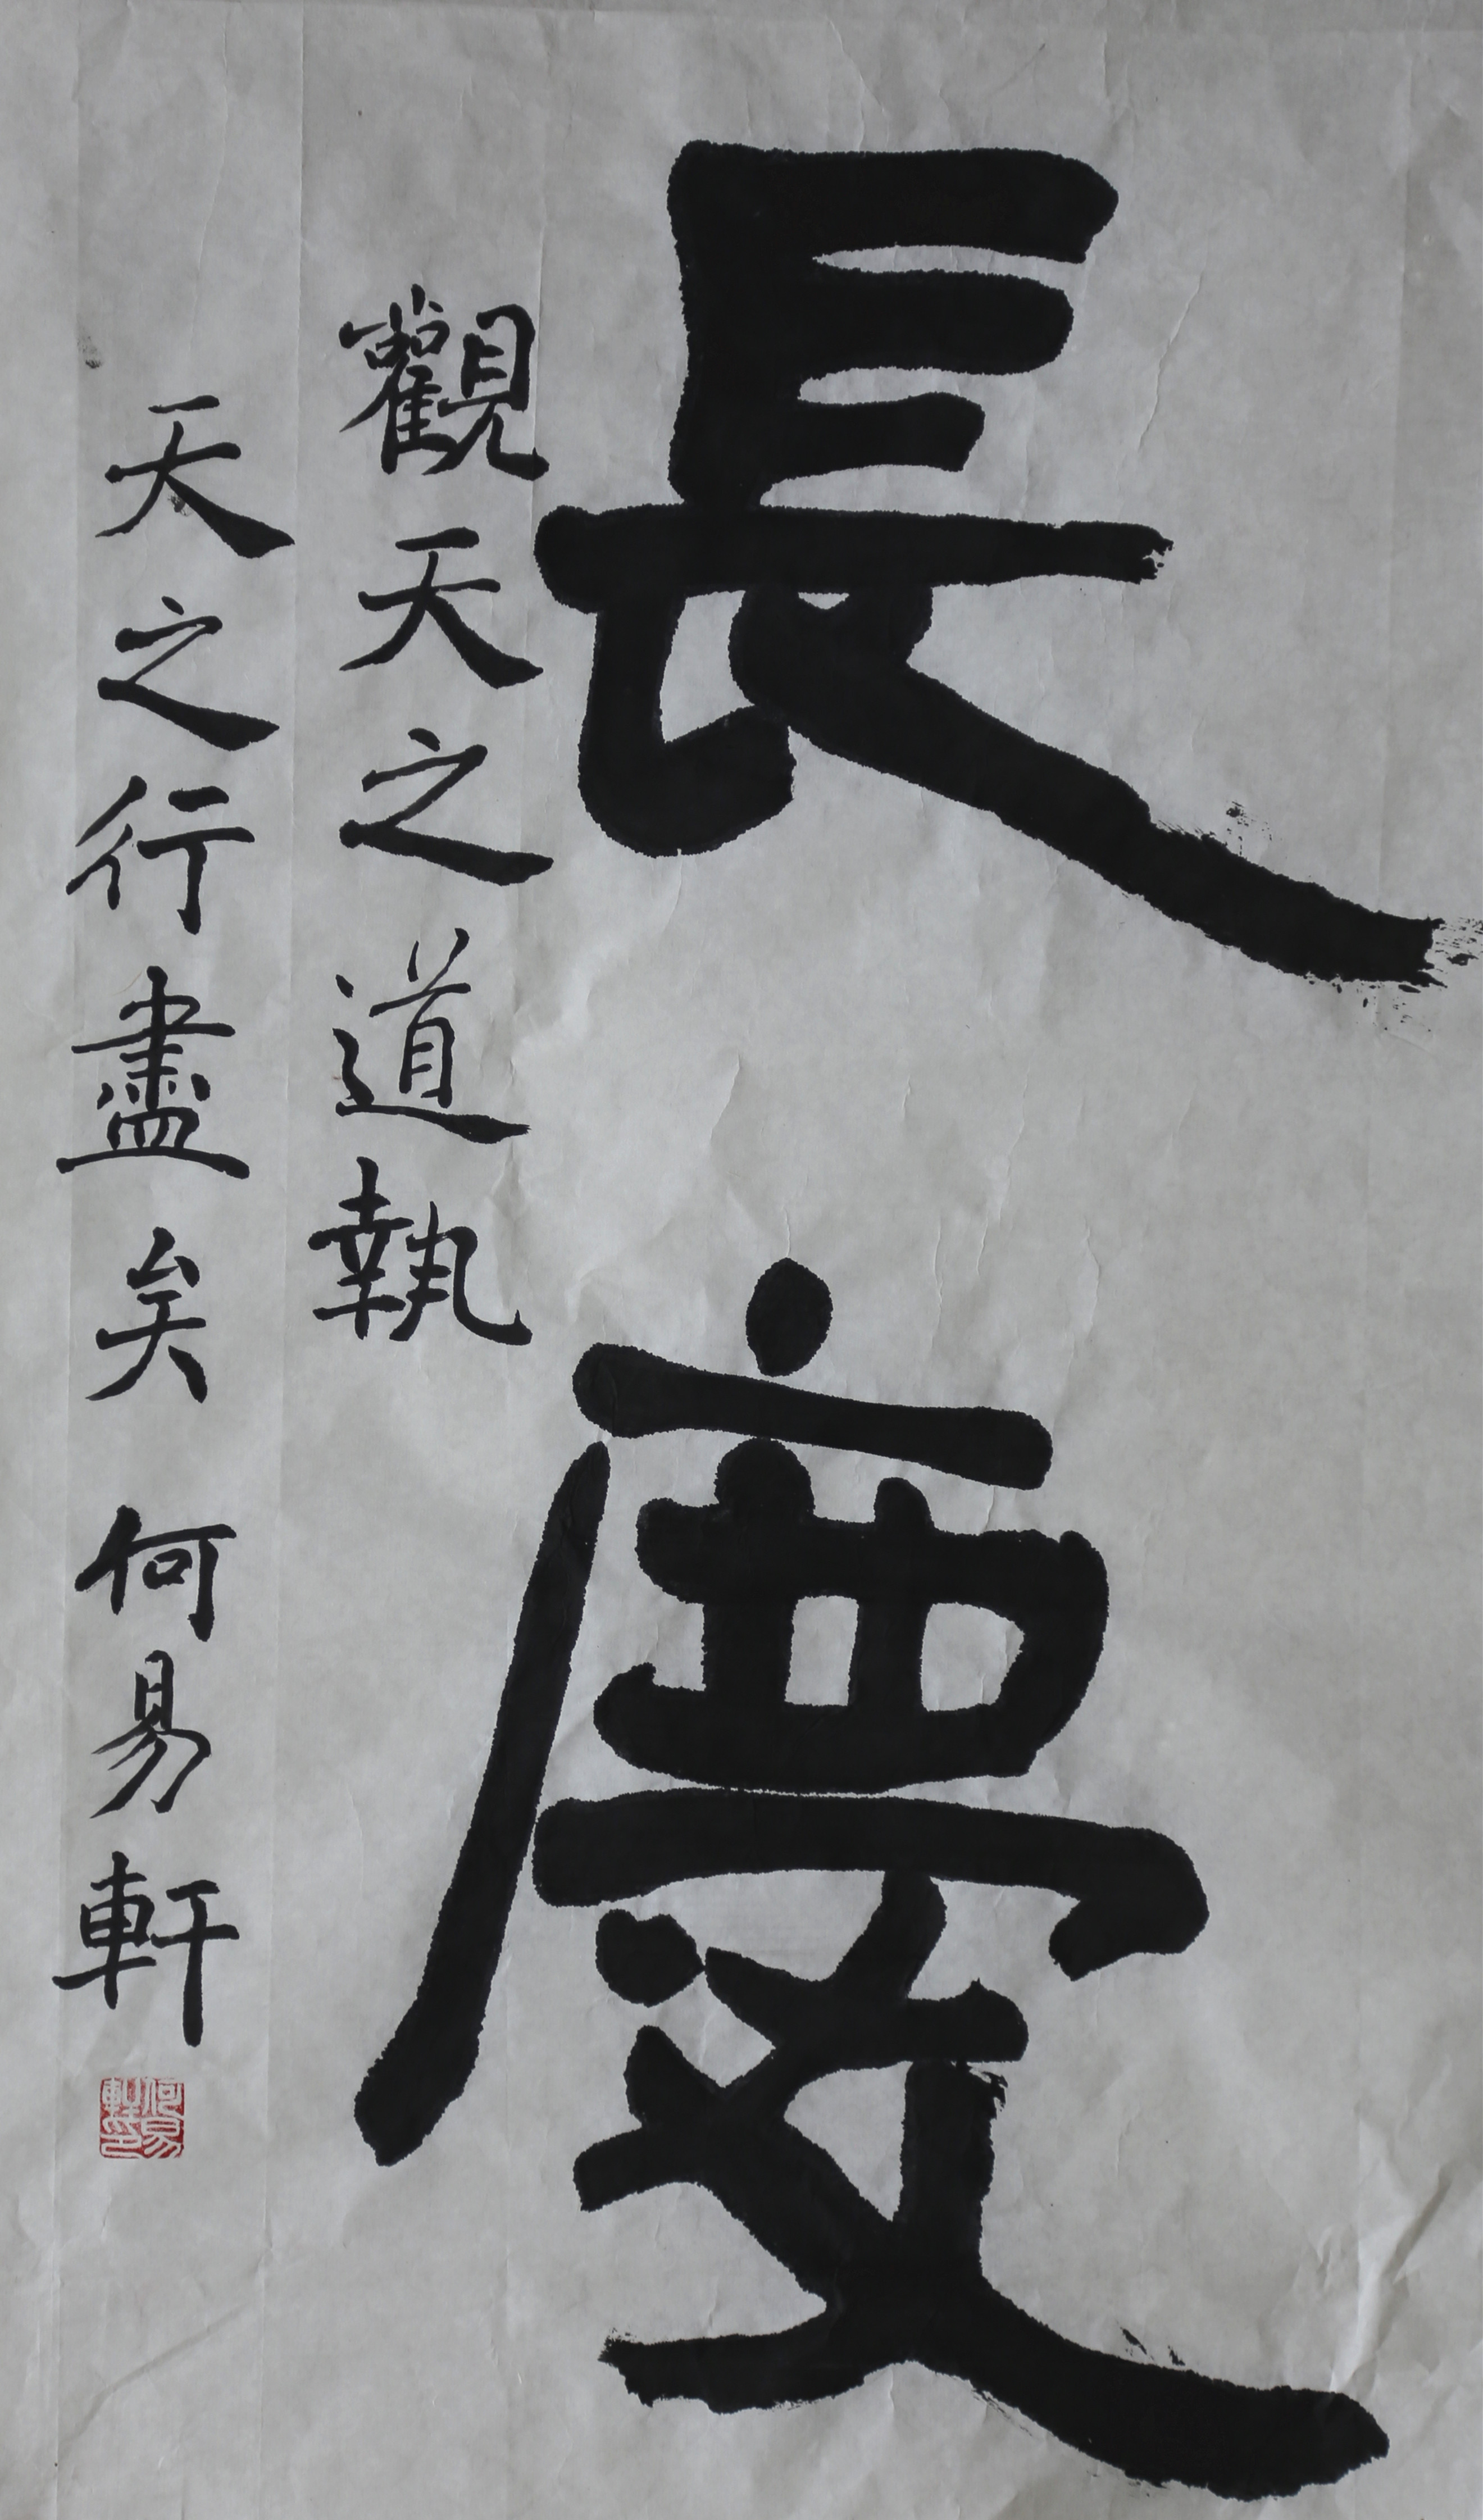 長慶
觀天之道執
天之行盡矣 何易軒
何易
軒印